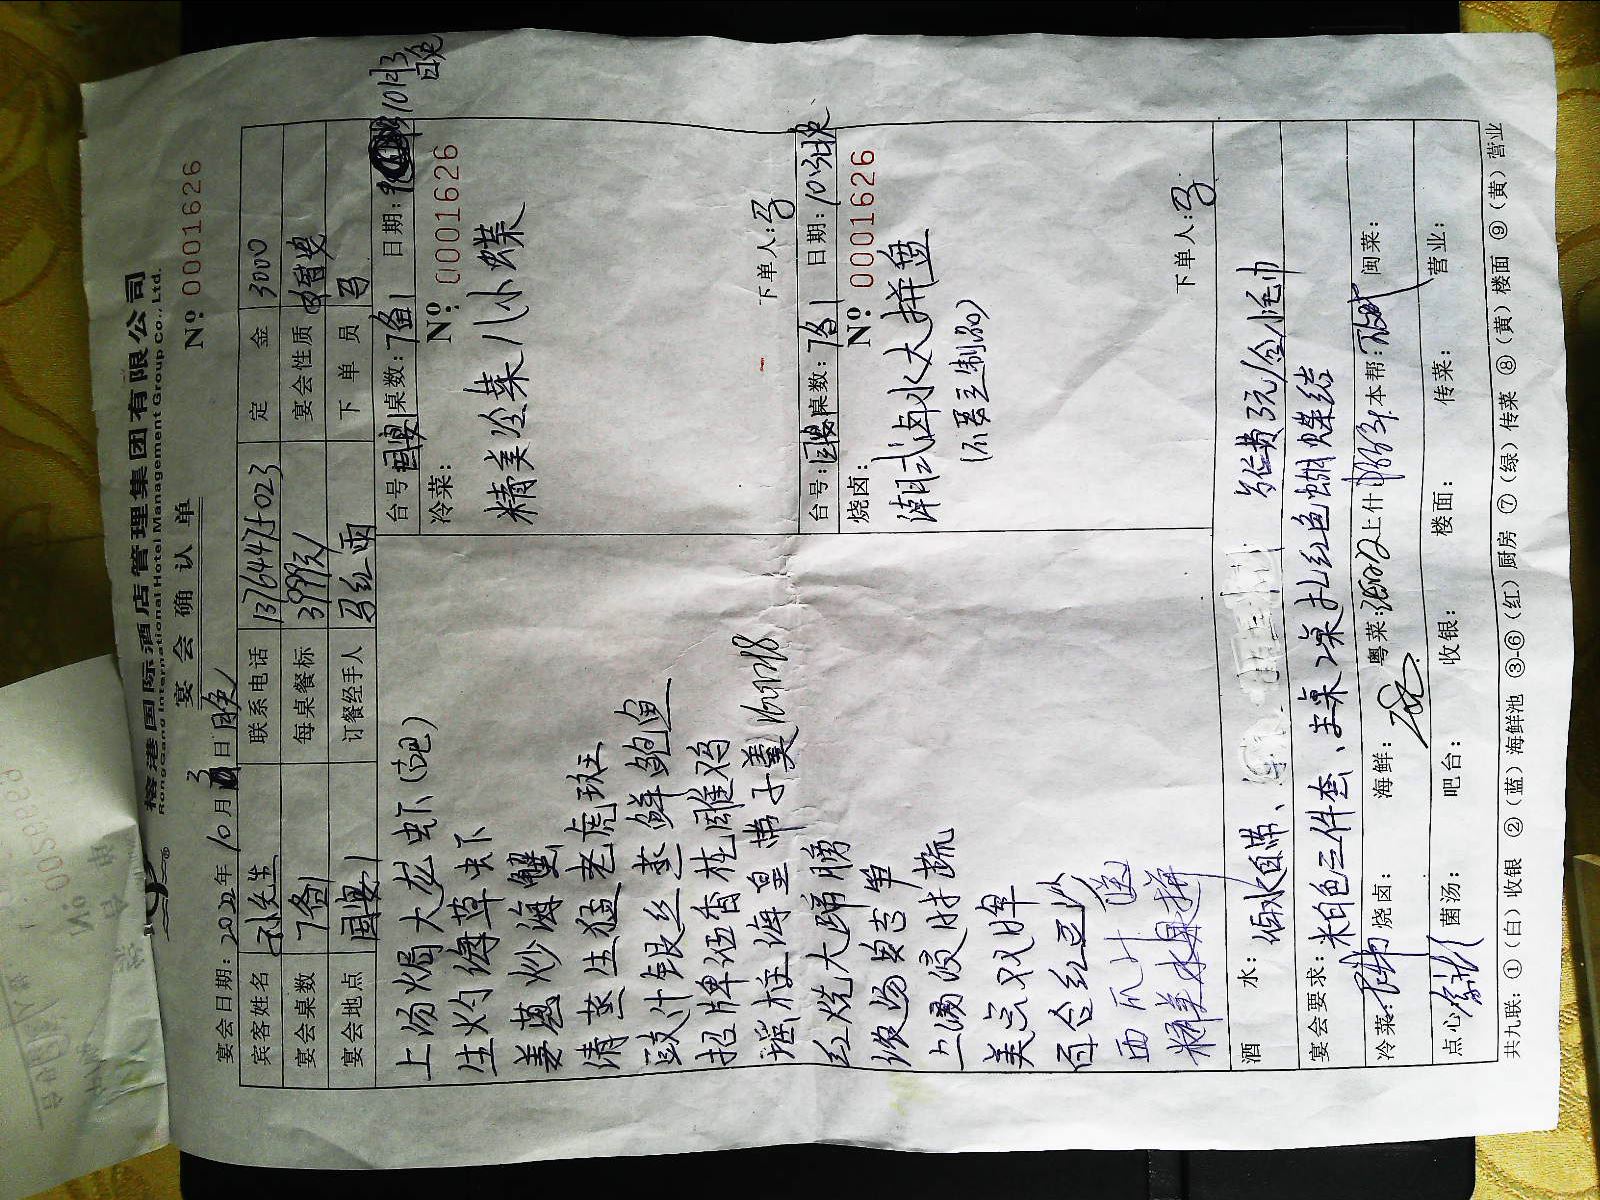 榕港国际酒店管理集团有限公司
RongGang International Hotel Management Group Co., Ltd.
宴会确认单
Nº 0001626
宴会日期: 年10月3日晚
宾客姓名 孙先生 联系电话 定金 3000
宴会桌数 7备1 每桌餐标 3999元 宴会性质
宴会地点 订餐经手人 马红雨 下单员 马
上汤焗大龙虾(吧)
生灼海草虾
姜葱炒海蟹
清蒸生猛老虎斑
豉汁银丝蒸鲜鲍鱼
招牌伍香桂雕鸡
瑶柱海皇带子羹
红烧大蹄膀
上汤浸时蔬
美点双辉
百合红豆沙
西瓜汁 送
精美水果拼
台号: 桌数:7备1 日期: 10月3日晚
冷菜: Nº 0001626
精美冷菜八小碟
下单人:马
台号: 桌数:7备1 日期:10月3日晚
烧卤: Nº 0001626
潮式卤水大拼盘
(不要豆制品)
下单人:马
酒水: 酒水自带、
宴会要求: 米白色三件套、主桌2桌扎红色蝴蝶结
冷菜: 烧卤: 海鲜: 粤菜: 上什 本帮: 闽菜:
点心 菌汤: 吧台: 收银: 楼面: 传菜: 营业:
共九联: ①(白)收银 ②(蓝)海鲜池 ③-⑥(红)厨房 ⑦(绿)传菜 ⑧(黄)楼面 ⑨(黄)营业